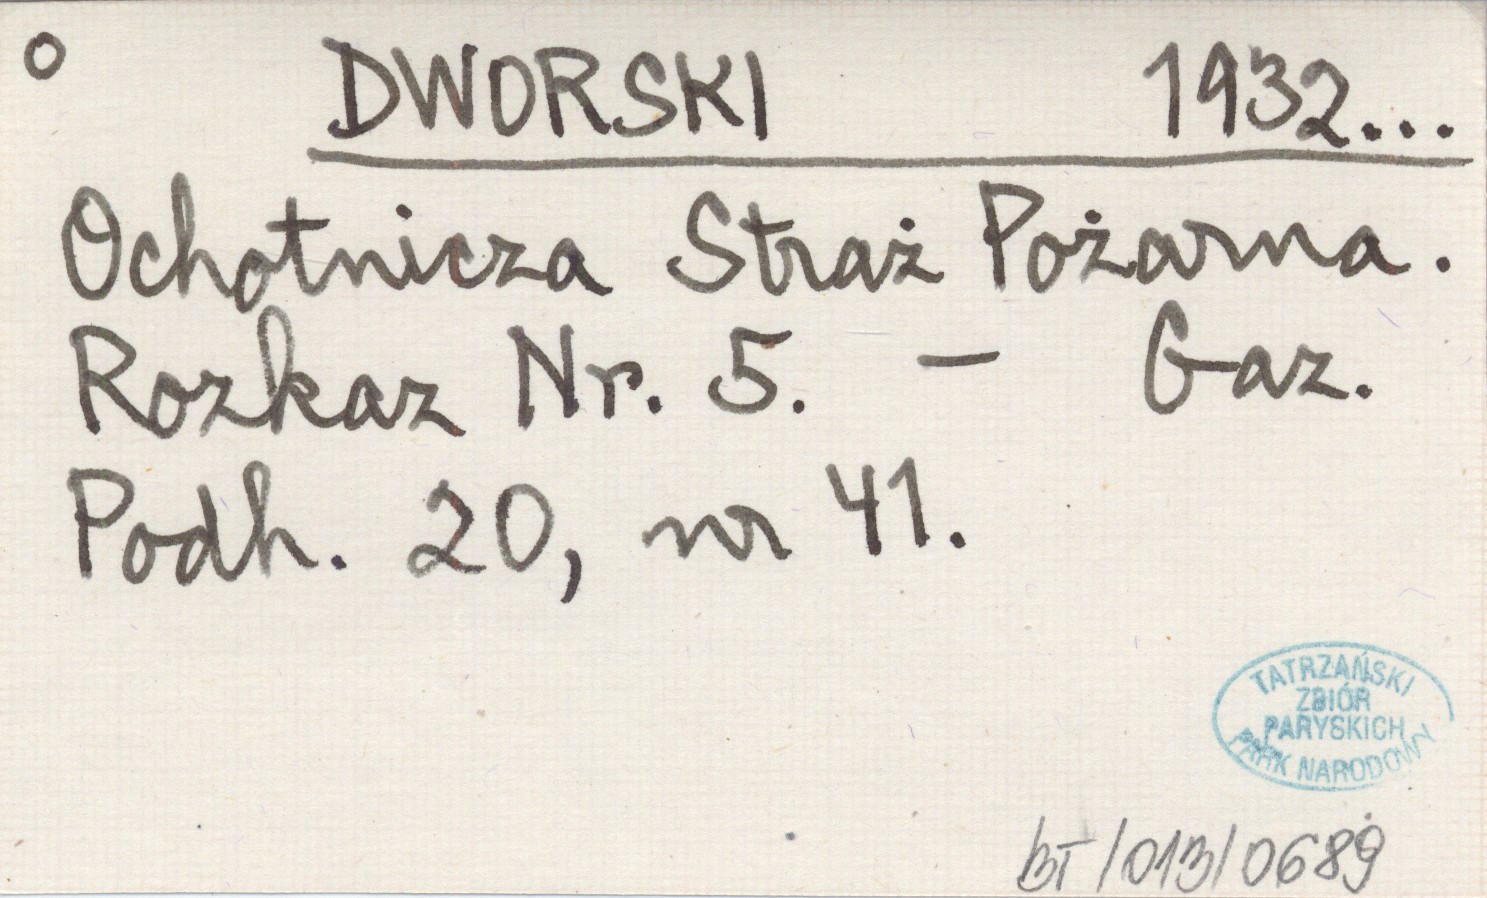 o DWORSKI 1932...
Ochotnicza Straż Pożarna.
Rozkaz Nr. 5. – Gaz.
Podh. 20, nr 41.
TATRZAŃSKI
ZBIÓR
PARYSKICH
PARK NARODOWY
BT/013/0689